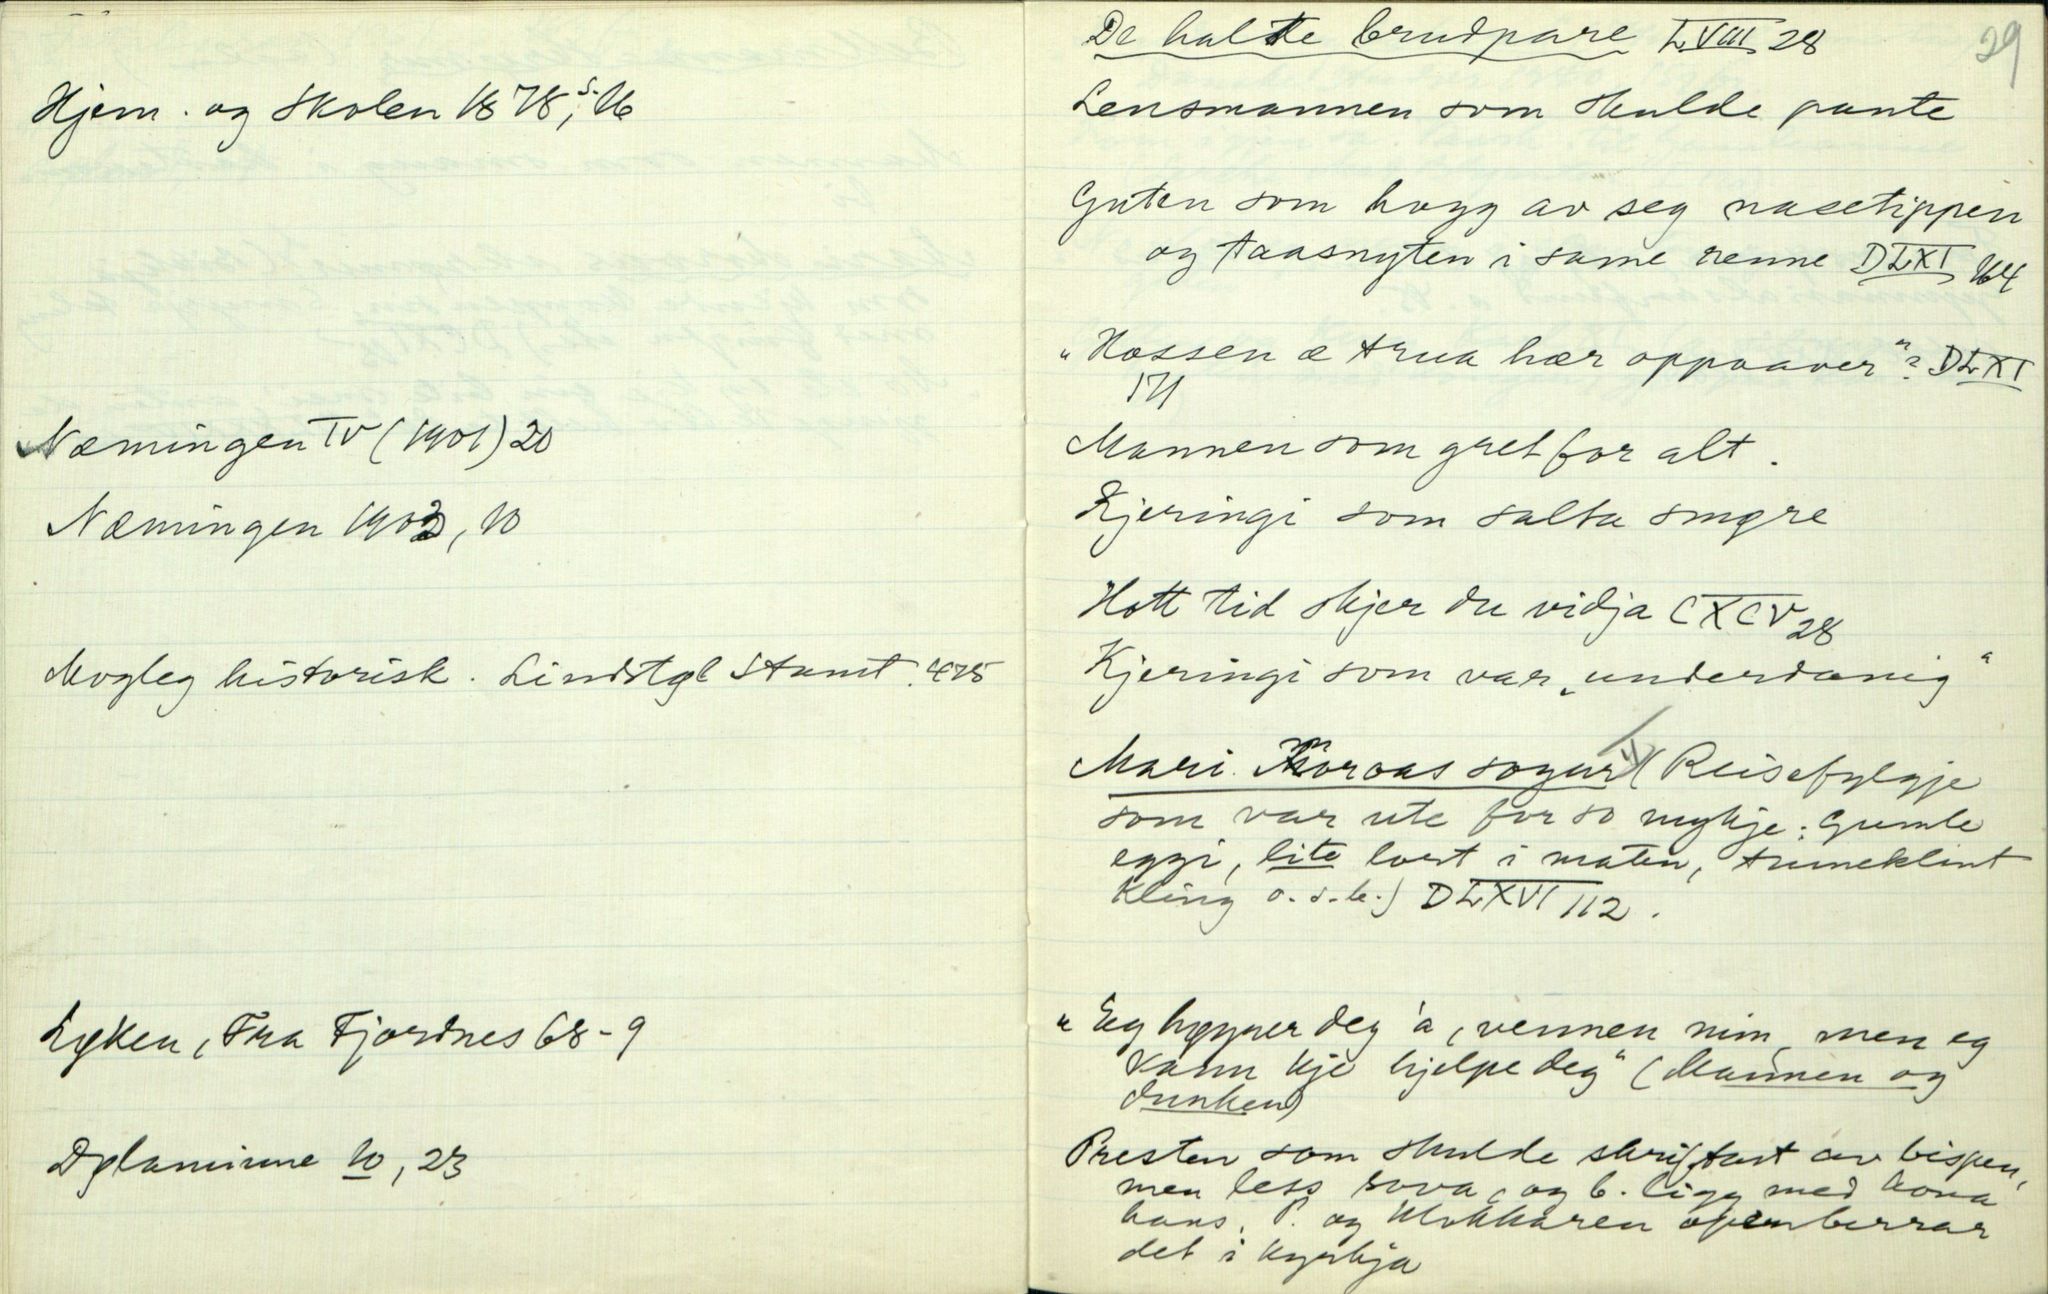 Hjem. og Skolen 1878, s. 16
Næmingen IV (1901) 20
Næmingen 1903, 10
Mogleg historisk. Lindstøl Stamt. 475
Lyken, Fra Fjordnes 68-9
Dølaminne 10, 23
29
De halte brudpare LVIII 28
Lensmannen som skulde pante
Guten som hogg av seg nasetippen
og taasnyten i same renne DLXI 164
"Hossen æ trua hær oppaaver"? DLXI
171
Mannen som gret for alt.
Kjeringi som salta smøre
Hott tid skjer du vidja CXCV 28
Kjeringi som var "underdanig"
Mari Moroas sogur (Reisefylgje
som var ute for so mykje: Gumle
eggi, lite lort i maten, trineklint
kling o.s.b.) DLXVI 112.
"Eg hypper deg å, vennen min, men eg
kann kje hjelpe deg" (Mannen og
dunken)
Presten som skulde skriftast av bispen,
men less sova, og b. ligg med kona
hans. P. og klokkaren openberrar
det i kyrkja